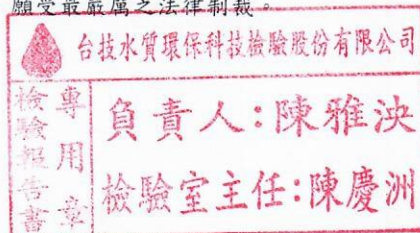 願受最嚴厲之法律制裁。
台技水質環保科技檢驗股份有限公司
檢驗報告書
專用章
負責人：陳雅泱
檢驗室主任：陳慶洲